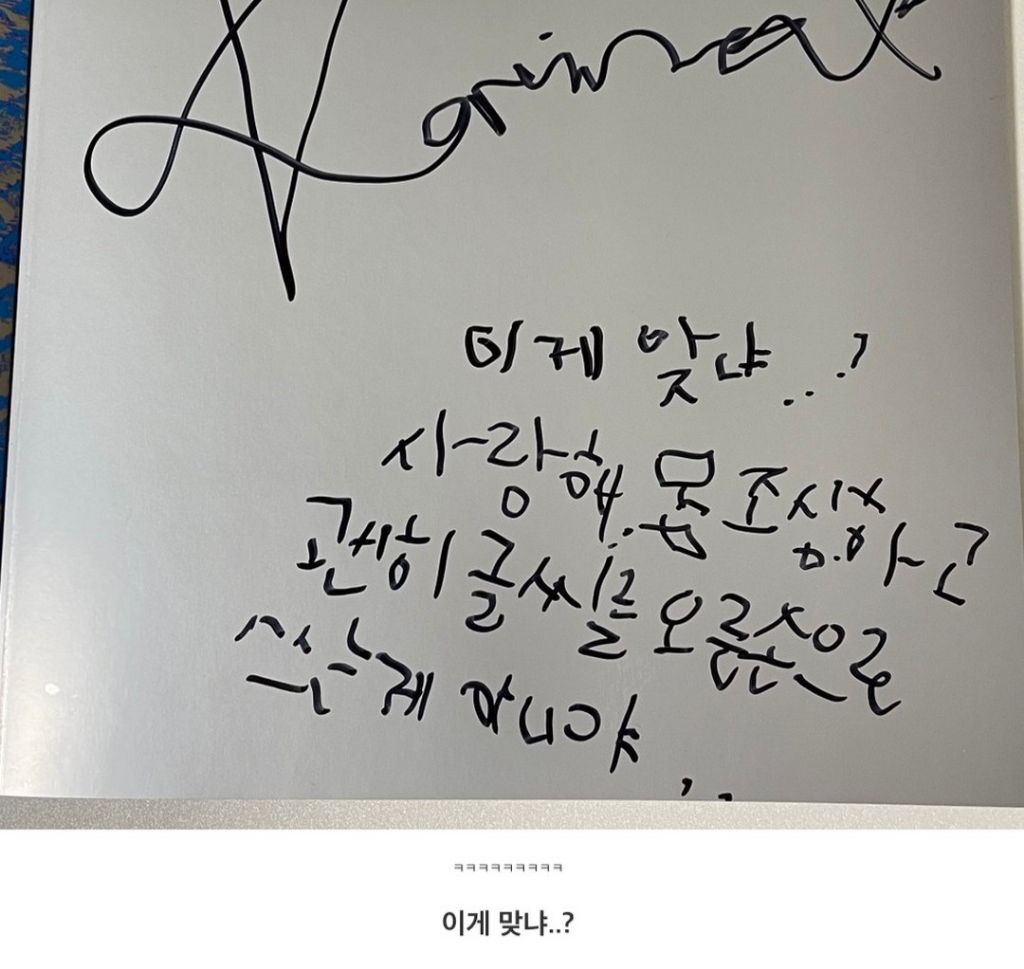 이게 맞냐..?
사랑해.. 몸 조심하고
괜히 글씨를 오른손으로
쓰는게 아니야..
ㅋㅋㅋㅋㅋㅋㅋㅋㅋ
이게 맞냐..?